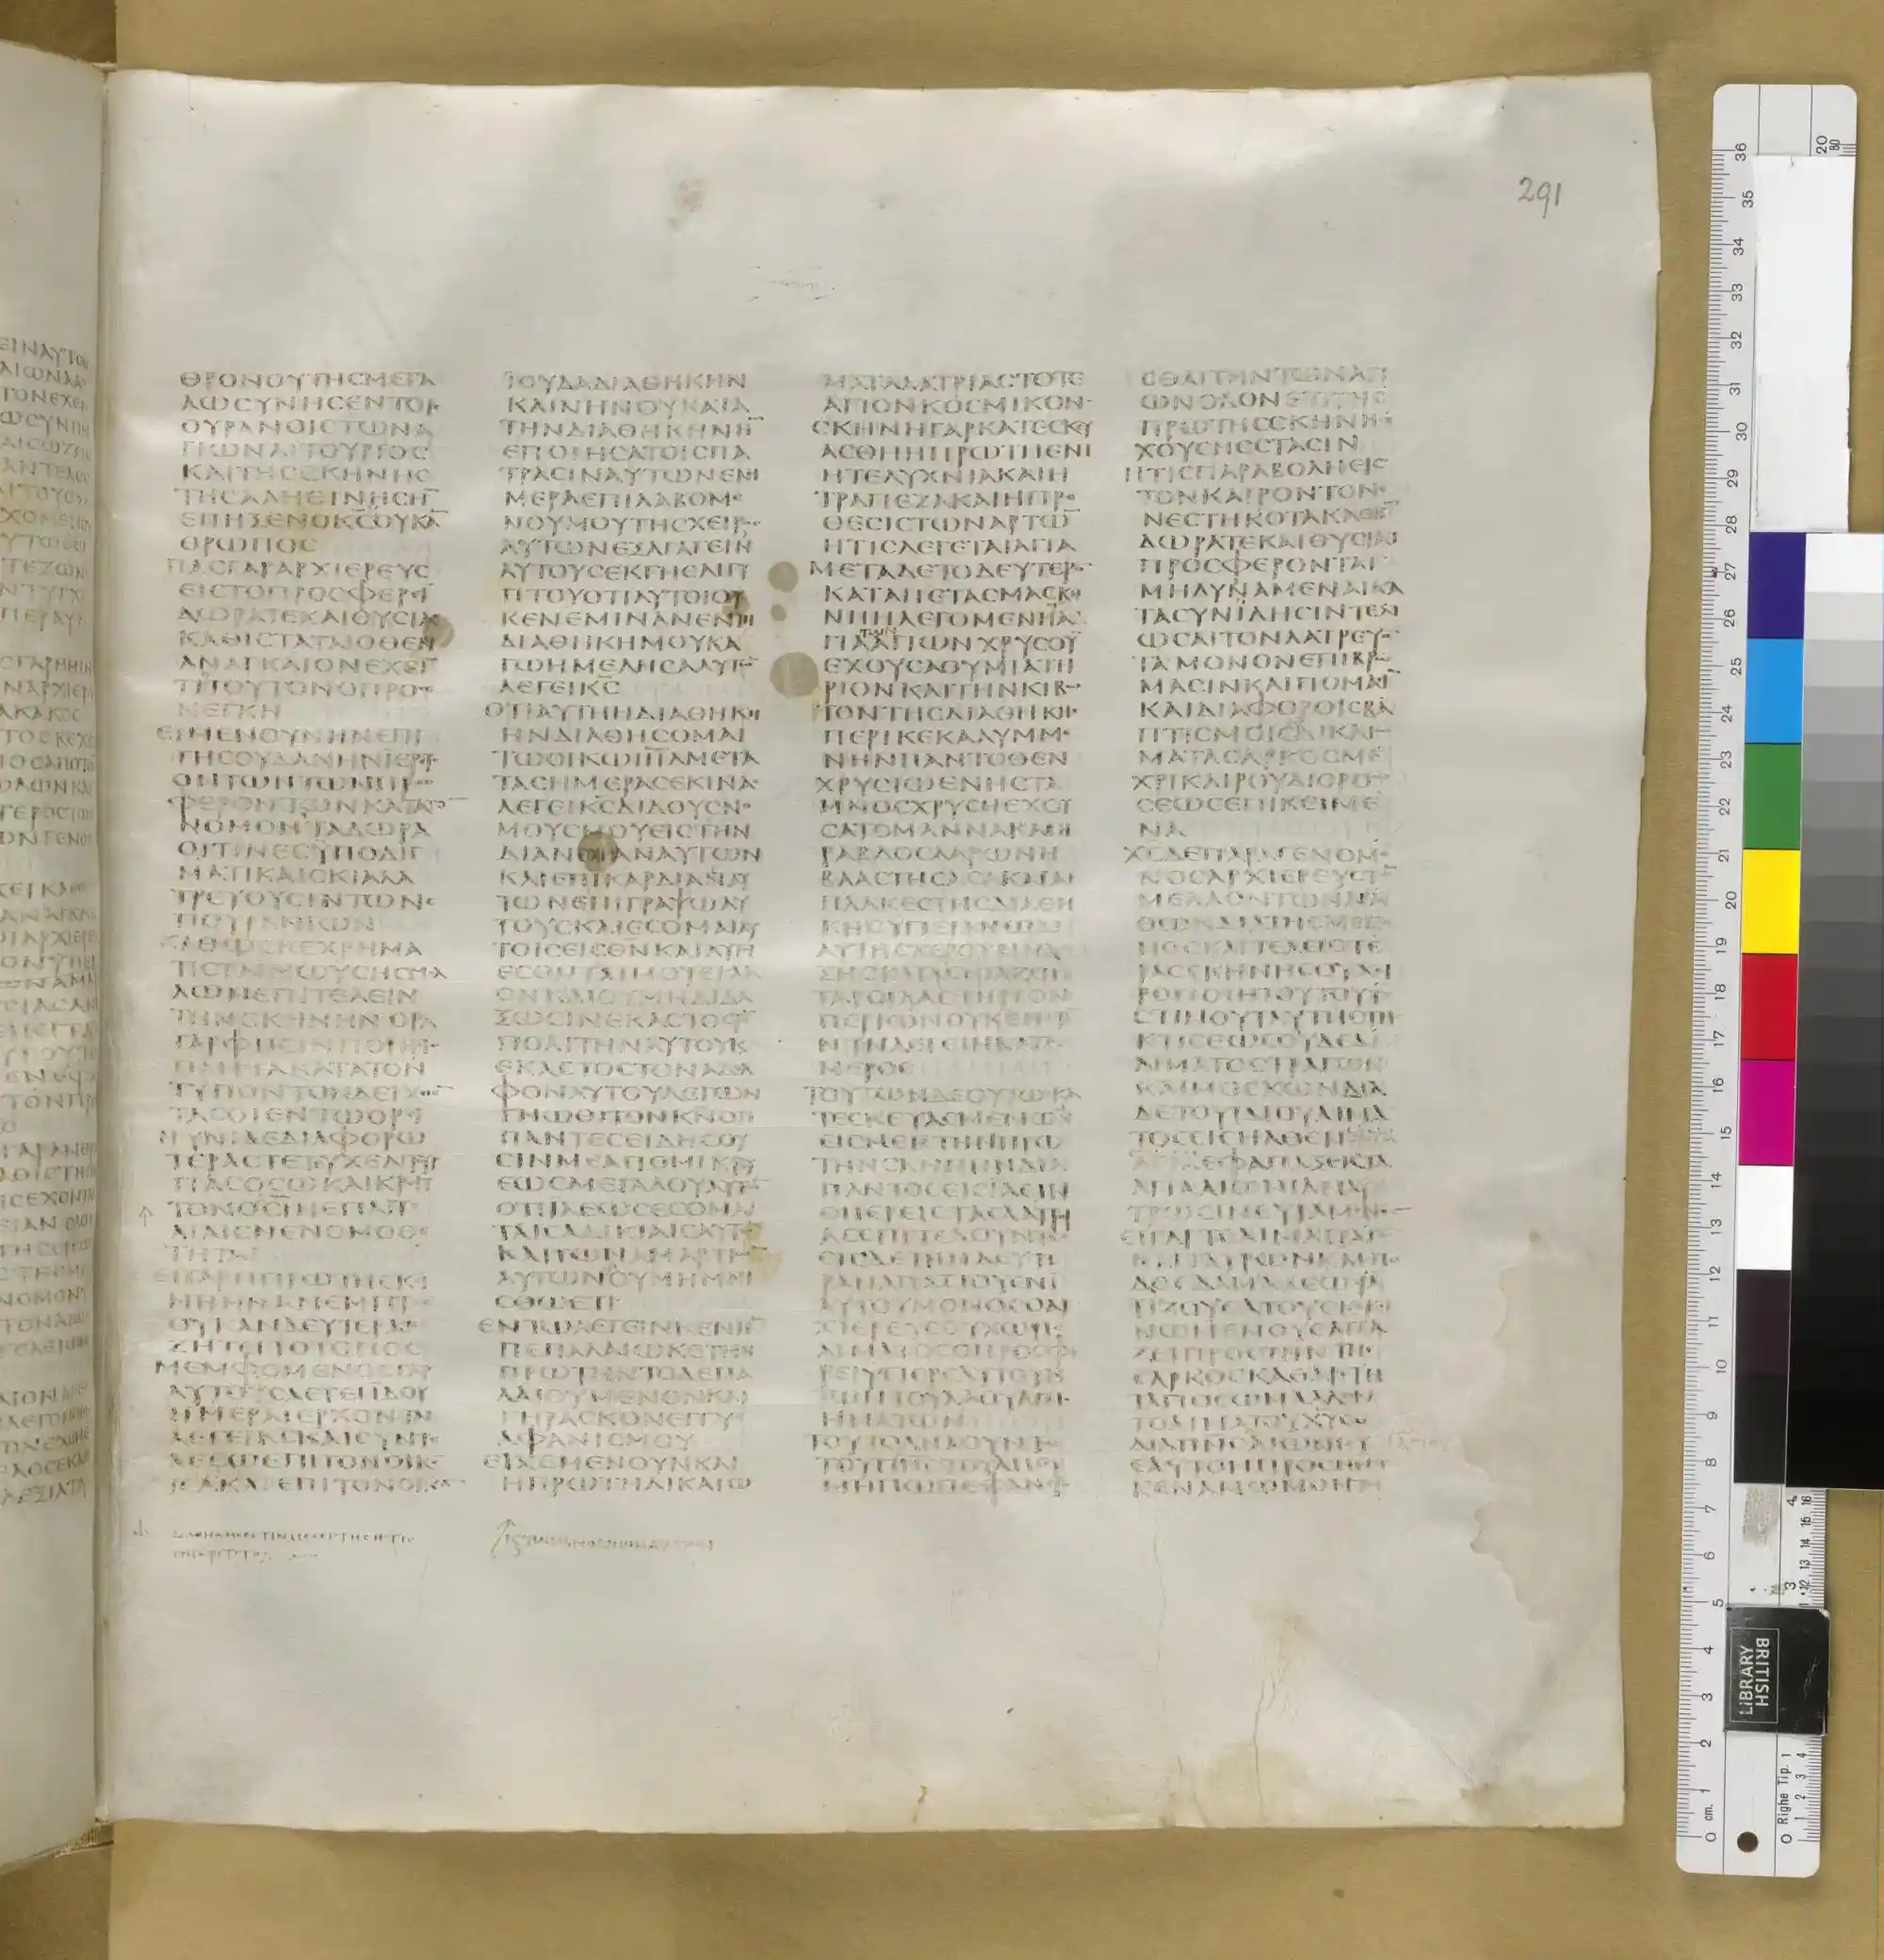 ΘΡΟΝΟΥΤΗϹΜΕΓΑ
ΛΩϹΥΝΗϹΕΝΤΟΙϹ
ΟΥΡΑΝΟΙϹΤΩΝΑ
ΓΙΩΝΛΙΤΟΥΡΓΟϹ
ΚΑΙΤΗϹϹΚΗΝΗϹ
ΤΗϹΑΛΗΘΙΝΗϹΗ̅
ΕΠΗΞΕΝΟΚ̅Ϲ̅ΟΥΚΑ̅
ΘΡΩΠΟϹ
ΠΑϹΓΑΡΑΡΧΙΕΡΕΥϹ
ΕΙϹΤΟΠΡΟϹΦΕΡΙ̅
ΔΩΡΑΤΕΚΑΙΘΥϹΙΑϹ
ΚΑΘΙϹΤΑΤΑΙΟΘΕΝ
ΑΝΑΓΚΑΙΟΝΕΧΕΙ̅
ΤΙΤΟΥΤΟΝΟΠΡΟϹ
ΝΕΓΚΗ
ΕΙΜΕΝΟΥΝΗΝΕΠΙ
ΓΗϹΟΥΔΑΝΗΝΙΕΡΕΥϹ
ΟΝΤΩΝΤΩΝΠΡΟϹ
ΦΕΡΟΝΤΩΝΚΑΤΑΤΟ̅
ΝΟΜΟΝΤΑΔΩΡΑ
ΟΙΤΙΝΕϹΥΠΟΔΙΓ
ΜΑΤΙΚΑΙϹΚΙΑΛΑ
ΤΡΕΥΟΥϹΙΝΤΩΝΕ
ΠΟΥΡΑΝΙΩΝ
ΚΑΘΩϹΚΕΧΡΗΜΑ
ΤΙϹΤΑΙΜΩΥϹΗϹΜΕΛ
ΛΩΝΕΠΙΤΕΛΕΙΝ
ΤΗΝϹΚΗΝΗΝΟΡΑ
ΓΑΡΦΗϹΙΝΠΟΙΗϹΙϹ
ΠΑΝΤΑΚΑΤΑΤΟΝ
ΤΥΠΟΝΤΟΝΔΕΙΧΘΕ̅
ΤΑϹΟΙΕΝΤΩΟΡΕΙ
ΝΥΝΙΔΕΔΙΑΦΟΡΩ
ΤΕΡΑϹΤΕΤΥΧΕΝΛΙ
ΤΟΥΡΓΙΑϹΟϹΩΚΑΙΚΡΙΤ
ΤΟΝΟϹΕϹΤΙΝΕΠΑΓΓΕ
ΛΙΑΙϹΝΕΝΟΜΟΘΕ
ΤΗΤΑΙ
ΕΙΓΑΡΗΠΡΩΤΗΕΚΙ
ΝΗΗΝΑΜΕΜΠΤΟϹ
ΟΥΚΑΝΔΕΥΤΕΡΑϹ
ΕΖΗΤΕΙΤΟΤΟΠΟϹ
ΜΕΜΦΟΜΕΝΟϹΓΑΡ
ΑΥΤΟΥϹΛΕΓΕΙΙΔΟΥ
ΗΜΕΡΑΙΕΡΧΟΝΤΑΙ
ΛΕΓΕΙΚ̅Ϲ̅ΚΑΙϹΥΝΤΕ
ΛΕϹΩΕΠΙΤΟΝΟΙΚΟ̅
ΙϹΛΚΑΙΕΠΙΤΟΝΟΙΚΟ̅
ΙΟΥΔΑΔΙΑΘΗΚΗΝ
ΚΑΙΝΗΝΟΥΚΑΤΑ
ΤΗΝΔΙΑΘΗΚΗΝΗ̅
ΕΠΟΙΗϹΑΤΟΙϹΠΑ
ΤΡΑϹΙΝΑΥΤΩΝΕΝΗ
ΜΕΡΑΕΠΙΛΑΒΟΜΕ
ΝΟΥΜΟΥΤΗϹΧΕΙΡΟϹ
ΑΥΤΩΝΕΞΑΓΑΓΕΙΝ
ΑΥΤΟΥϹΕΚΓΗϹΑΙΓΥ
ΠΤΟΥΟΤΙΑΥΤΟΙΟΥ
ΚΕΝΕΜΙΝΑΝΕΝΤΗ
ΔΙΑΘΗΚΗΜΟΥΚΑ
ΓΩΗΜΕΛΗϹΑΑΥΤΩ̅
ΛΕΓΕΙΚ̅Ϲ̅
ΟΤΙΑΥΤΗΗΔΙΑΘΗΚΗ
ΗΝΔΙΑΘΗϹΟΜΑΙ
ΤΩΟΙΚΩΙ̅Η̅Λ̅ΜΕΤΑ
ΤΑϹΗΜΕΡΑϹΕΚΙΝΑϹ
ΛΕΓΕΙΚ̅Ϲ̅ΔΙΔΟΥϹΝΟ
ΜΟΥϹΜΟΥΕΙϹΤΗΝ
ΔΙΑΝΟΙΑΝΑΥΤΩΝ
ΚΑΙΕΠΙΚΑΡΔΙΑΝΑΥ
ΤΩΝΕΠΙΓΡΑΨΩΑΥ
ΤΟΥϹΚΑΙΕϹΟΜΑΙΑΥ
ΤΟΙϹΕΙϹΘΝΚΑΙΑΥΤΟΙ
ΕϹΟΝΤΑΙΜΟΙΕΙϹΛΑ
ΟΝΚΑΙΟΥΜΗΔΙΔΑ
ΞΩϹΙΝΕΚΑϹΤΟϹΤΟ̅
ΠΟΛΙΤΗΝΑΥΤΟΥΚΑΙ
ΕΚΑϹΤΟϹΤΟΝΑΔΕΛ
ΦΟΝΑΥΤΟΥΛΕΓΩΝ
ΓΝΩΘΙΤΟΝΚ̅Ν̅ΟΤΙ
ΠΑΝΤΕϹΕΙΔΗϹΟΥ
ϹΙΝΜΕΑΠΟΜΙΚΡΟΥ
ΕΩϹΜΕΓΑΛΟΥΑΥΤΩ̅
ΟΤΙΙΛΕΩϹΕϹΟΜΑΙ
ΤΑΙϹΑΔΙΚΙΑΙϹΑΥΤΩ̅
ΚΑΙΤΩΝΑΜΑΡΤΙΩ̅
ΑΥΤΩΝΟΥΜΗΜΝΗ
ϹΘΩΕΤΙ
ΕΝΤΩΛΕΓΕΙΝΚΕΝΗ̅
ΠΕΠΑΛΑΙΩΚΕΤΗΝ
ΠΡΩΤΗΝΤΟΔΕΠΑ
ΛΑΙΟΥΜΕΝΟΝΚΑΙ
ΓΗΡΑϹΚΟΝΕΓΓΥϹ
ΑΦΑΝΙϹΜΟΥ
ΕΙΧΕΜΕΝΟΥΝΚΑΙ
ΗΠΡΩΤΗΔΙΚΑΙΩ
ΜΑΤΑΛΑΤΡΙΑϹΤΟΤΕ
ΑΓΙΟΝΚΟϹΜΙΚΟΝ
ϹΚΗΝΗΓΑΡΚΑΤΕϹΚΕΥ
ΑϹΘΗΗΠΡΩΤΗΕΝΗ
ΗΤΕΛΥΧΝΙΑΚΑΙΗ
ΤΡΑΠΕΖΑΚΑΙΗΠΡΟ
ΘΕϹΙϹΤΩΝΑΡΤΩ̅
ΗΤΙϹΛΕΓΕΤΑΙΑΓΙΑ
ΜΕΤΑΔΕΤΟΔΕΥΤΕΡΟ̅
ΚΑΤΑΠΕΤΑϹΜΑϹΚΗ
ΝΗΗΛΕΓΟΜΕΝΗΑ
ΓΙΑΑΓΙΩΝΧΡΥϹΟΥ̅
ΕΧΟΥϹΑΘΥΜΙΑΤΗ
ΡΙΟΝΚΑΙΤΗΝΚΙΒΩ
ΤΟΝΤΗϹΔΙΑΘΗΚΗϹ
ΠΕΡΙΚΕΚΑΛΥΜΜΕ
ΝΗΝΠΑΝΤΟΘΕΝ
ΧΡΥϹΙΩΕΝΗϹΤΑ
ΜΝΟϹΧΡΥϹΗΕΧΟΥ
ϹΑΤΟΜΑΝΝΑΚΑΙΗ
ΡΑΒΔΟϹΑΑΡΩΝΗ
ΒΛΑϹΤΗϹΑϹΑΚΑΙΑΙ
ΠΛΑΚΕϹΤΗϹΔΙΑΘΗ
ΚΗϹΥΠΕΡΑΝΩΔΕ
ΑΥΤΗϹΧΕΡΟΥΒΙΝΔΟ
ΞΗϹΚΑΤΑϹΚΙΑΖΟΝ
ΤΑΤΟΙΛΑϹΤΗΡΙΟΝ
ΠΕΡΙΩΝΟΥΚΕϹΤΙ̅
ΝΥΝΛΕΓΕΙΝΚΑΤΑ
ΜΕΡΟϹ
ΤΟΥΤΩΝΔΕΟΥΤΩΚΑ
ΤΕϹΚΕΥΑϹΜΕΝΩ̅
ΕΙϹΜΕΝΤΗΝΠΡΩ
ΤΗΝϹΚΗΝΗΝΔΙΑ
ΠΑΝΤΟϹΕΙϹΙΑϹΙΝ
ΟΙΙΕΡΕΙϹΤΑϹΛΑΤΡΙ
ΑϹΕΠΙΤΕΛΟΥΝΤΕϹ
ΕΙϹΔΕΤΗΝΔΕΥΤΕ
ΡΑΝΑΠΑΞΤΟΥΕΝΙ
ΑΥΤΟΥΜΟΝΟϹΟΑΡ
ΧΙΕΡΕΥϹΟΥΧΩΡΙϹ
ΑΙΜΑΤΟϹΟΠΡΟϹΦΕ
ΡΕΙΥΠΕΡΕΑΥΤΟΥΚΑΙ
ΤΩΝΤΟΥΛΑΟΥΑΓΝΟ
ΗΜΑΤΩΝ
ΤΟΥΤΟΔΗΛΟΥΝΤΟϹ
ΤΟΥΠΝϹΤΟΥΑΓΙΟΥ
ΜΗΠΩΠΕΦΑΝΕΡΩ
ϹΘΑΙΤΗΝΤΩΝΑΓΙ
ΩΝΟΔΟΝΕΤΙΤΗϹ
ΠΡΩΤΗϹϹΚΗΝΗϹΕ
ΧΟΥϹΗϹϹΤΑϹΙΝ
ΗΤΙϹΠΑΡΑΒΟΛΗΕΙϹ
ΤΟΝΚΑΙΡΟΝΤΟΝΕ
ΝΕϹΤΗΚΟΤΑΚΑΘΗ̅
ΔΩΡΑΤΕΚΑΙΘΥϹΙΑΙ
ΠΡΟϹΦΕΡΟΝΤΑΙ
ΜΗΔΥΝΑΜΕΝΑΙΚΑ
ΤΑϹΥΝΙΔΗϹΙΝΤΕΛΙ
ΩϹΑΙΤΟΝΛΑΤΡΕΥΟ̅
ΤΑΜΟΝΟΝΕΠΙΒΡΩ
ΜΑϹΙΝΚΑΙΠΟΜΑϹΙ̅
ΚΑΙΔΙΑΦΟΡΟΙϹΒΑ
ΠΤΙϹΜΟΙϹΔΙΚΑΙΩ
ΜΑΤΑϹΑΡΚΟϹΜΕ
ΧΡΙΚΑΙΡΟΥΔΙΟΡΘΩ
ϹΕΩϹΕΠΙΚΕΙΜΕ
ΝΑ
Χ̅Ϲ̅ΔΕΠΑΡΑΓΕΝΟΜΕ
ΝΟϹΑΡΧΙΕΡΕΥϹΤΩ̅
ΜΕΛΛΟΝΤΩΝΑΓΑ
ΘΩΝΔΙΑΤΗϹΜΕΙΖΟ
ΝΟϹΚΑΙΤΕΛΕΙΟΤΕ
ΡΑϹϹΚΗΝΗϹΟΥΧΕΙ
ΡΟΠΟΙΗΤΟΥΤΟΥΤ
ΕϹΤΙΝΟΥΤΑΥΤΗϹΤΗϹ
ΚΤΙϹΕΩϹΟΥΔΕΔΙ
ΑΙΜΑΤΟϹΤΡΑΓΩΝ
ΚΑΙΜΟϹΧΩΝΔΙΑ
ΔΕΤΟΥΙΔΙΟΥΑΙΜΑ
ΤΟϹΕΙϹΗΛΘΕΝ
ΕΦΑΠΑΞΕΙϹΤΑ
ΑΓΙΑΑΙΩΝΙΑΝΛΥ
ΤΡΩϹΙΝΕΥΡΑΜΕΝΟϹ
ΕΙΓΑΡΤΟΑΙΜΑΤΡΑΓΩ̅
ΚΑΙΤΑΥΡΩΝΚΑΙϹΠΟ
ΔΟϹΔΑΜΑΛΕΩϹΡΑ̅
ΤΙΖΟΥϹΑΤΟΥϹΚΕΚΟΙ
ΝΩΜΕΝΟΥϹΑΓΙΑ
ΖΕΙΠΡΟϹΤΗΝΤΗϹ
ϹΑΡΚΟϹΚΑΘΑΡΟΤΗ
ΤΑΠΟϹΩΜΑΛΛΟΝ
ΤΟΑΙΜΑΤΟΥΧ̅Υ̅ΟϹ
ΔΙΑΠΝϹΑΙΩΝΙΟΥ
ΕΑΥΤΟΝΠΡΟϹΗΝΕΓ
ΚΕΝΑΜΩΜΟΝΤΩ
291